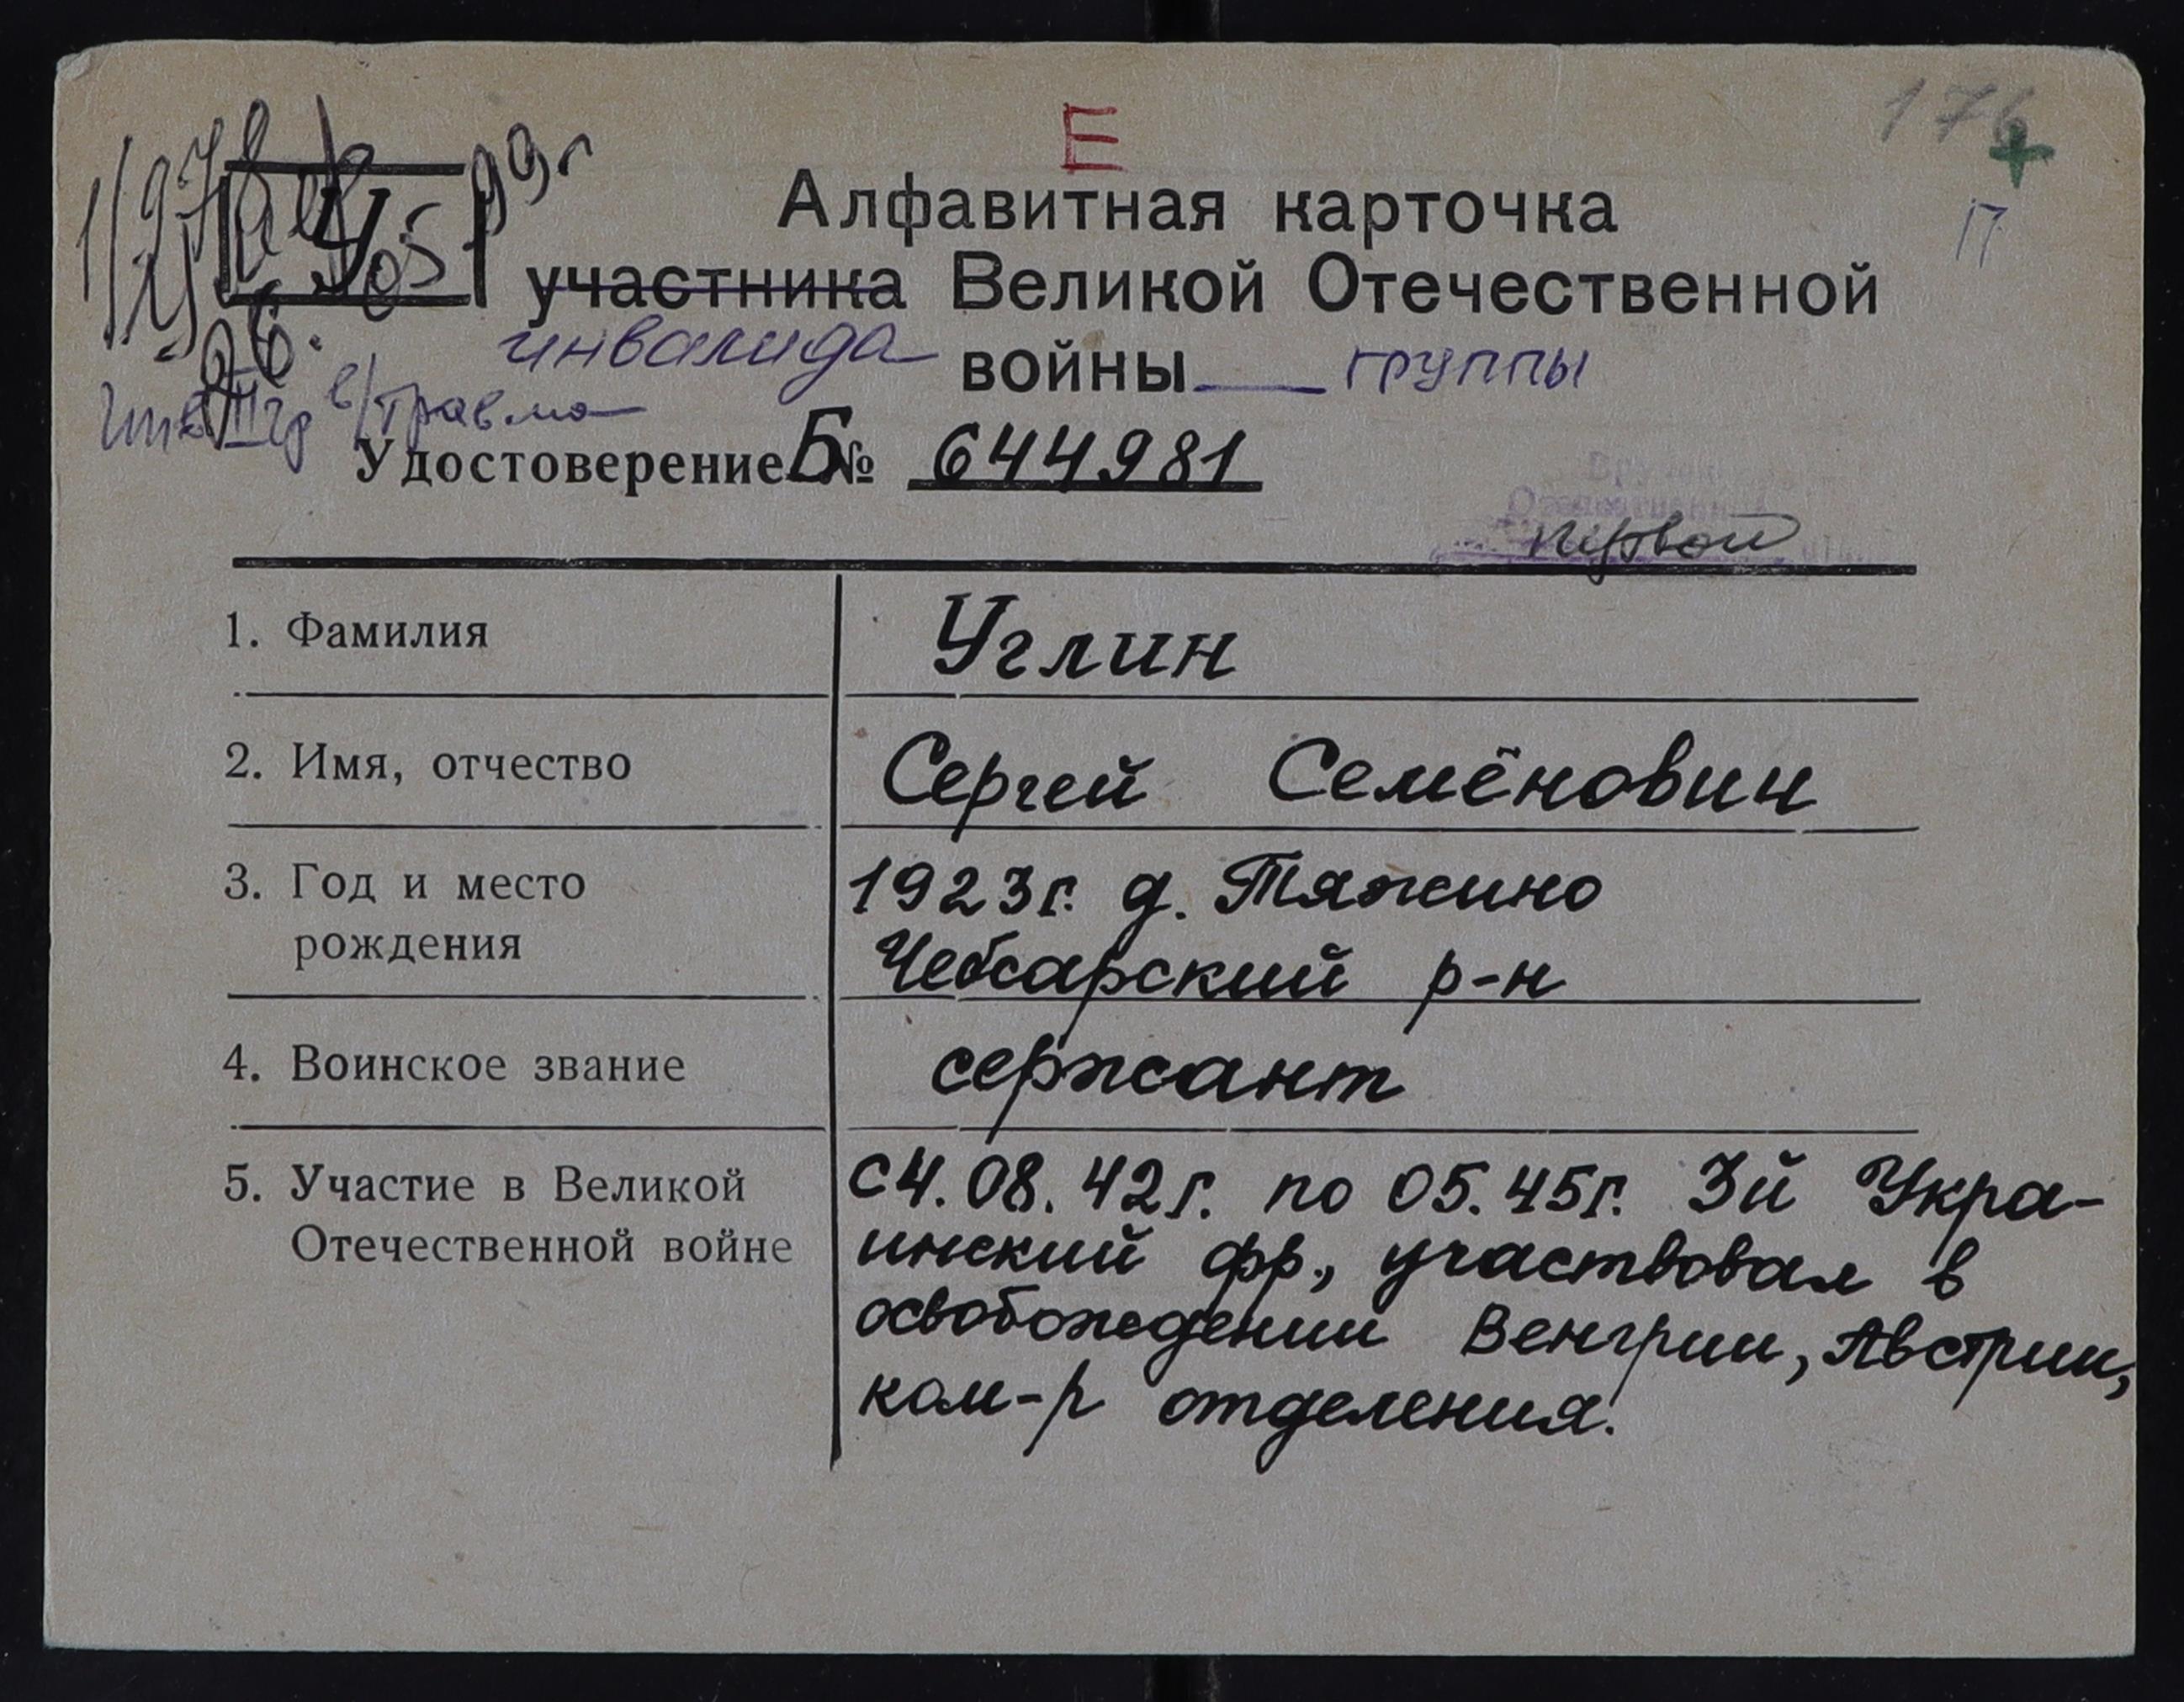 Е
176
Алфавитная карточка
П
участника Великой Отечественной
инвалида войны группы
Инв III гр в/травма
Удостоверение Б № 644981
первой
1. Фамилия Углин
2. Имя, отчество Сергей Семёнович
3. Год и место 1923г. д. Тяжино
рождения Чебсарский р-н
4. Воинское звание сержант
5. Участие в Великой с 4.08.42г. по 05.45г. 3й Укра-
Отечественной войне инский фр., участвовал в
освобождении Венгрии, Австрии,
ком-р отделения.